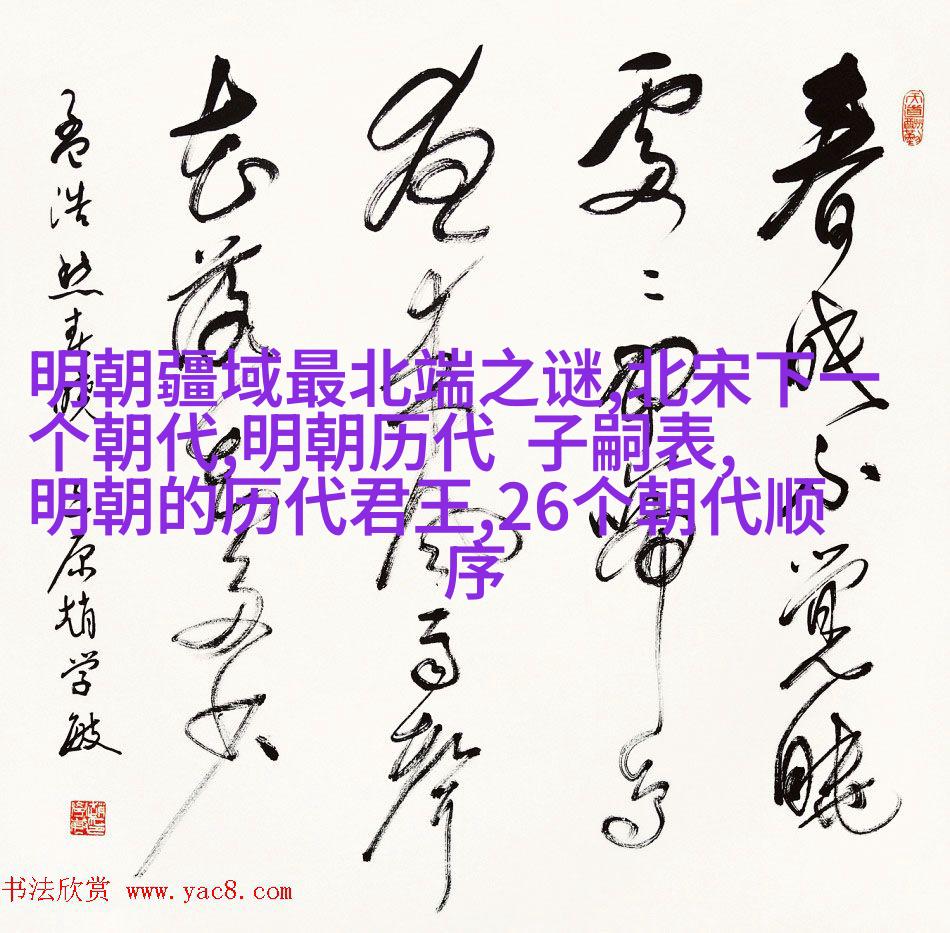 春眠不觉晓
處々闻啼鸟
夜来风雨声
花落知多少
孟浩然春晓 太原赵学敏
天道酬勤
明朝疆域最北端之谜,北宋下一
个朝代,明朝历代 子嗣表,
明朝的历代君王,26个朝代顺
序
书法欣赏 www.yac8.com